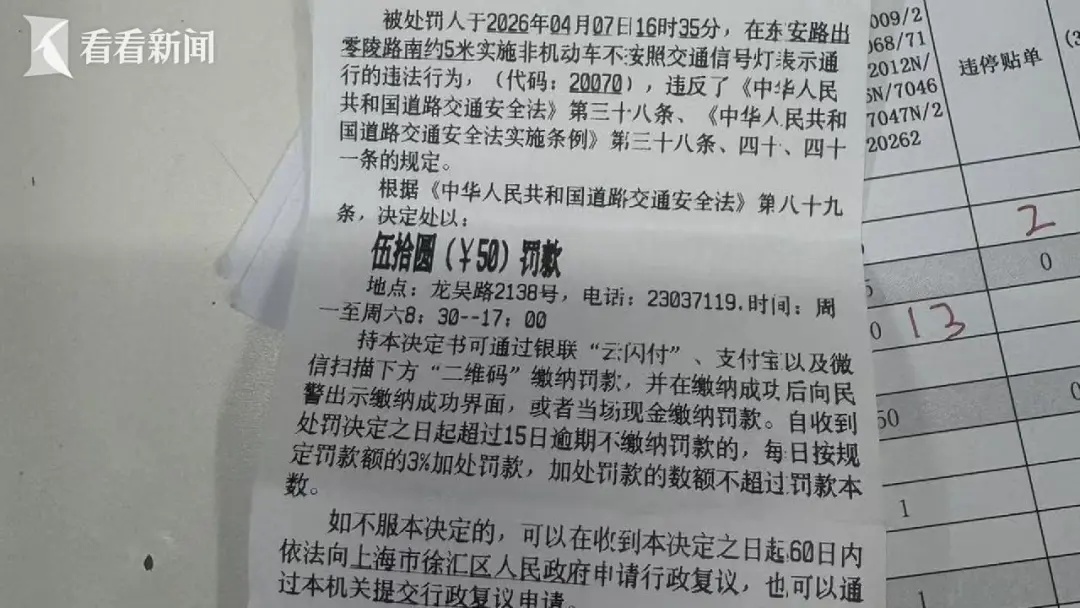 看看新闻
被处罚人于2026年04月07日16时35分，在东安路出
零陵路南约5米实施非机动车不按照交通信号灯表示通
行的违法行为，（代码：20070），违反了《中华人民
共和国道路交通安全法》第三十八条、《中华人民共和
国道路交通安全法实施条例》第三十八条、四十、四十
一条的规定。
根据《中华人民共和国道路交通安全法》第八十九
条，决定处以：
伍拾圆（￥50）罚款
地点：龙吴路2138号，电话：23037119.时间：周
一至周六8：30--17：00
持本决定书可通过银联“云闪付”、支付宝以及微
信扫描下方“二维码”缴纳罚款，并在缴纳成功后向民
警出示缴纳成功界面，或者当场现金缴纳罚款。自收到
处罚决定之日起超过15日逾期不缴纳罚款的，每日按规
定罚款额的3%加处罚款，加处罚款的数额不超过罚款本
数。
如不服本决定的，可以在收到本决定之日起60日内
依法向上海市徐汇区人民政府申请行政复议，也可以通
过本机关提交行政复议申请。
009/2
068/71
2012N/
6N/7046
7047N/2
20262
违停贴单
2
0
0
13
50
0
1
1